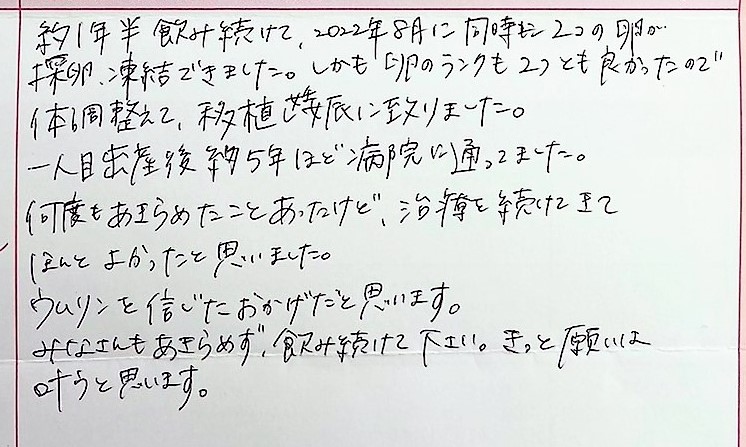 約1年半飲み続けて、2022年8月に同時に2つの卵が
採卵、凍結できました。しかも卵のランクも2つとも良かったので
体調整えて、移植し妊娠に至りました。
一人目出産後約5年ほど病院に通ってました。
何度もあきらめたことあったけど、治療を続けてきて
ほんとよかったと思いました。
ウムリンを信じたおかげだと思います。
みなさんもあきらめず、飲み続けて下さい。きっと願いは
叶うと思います。